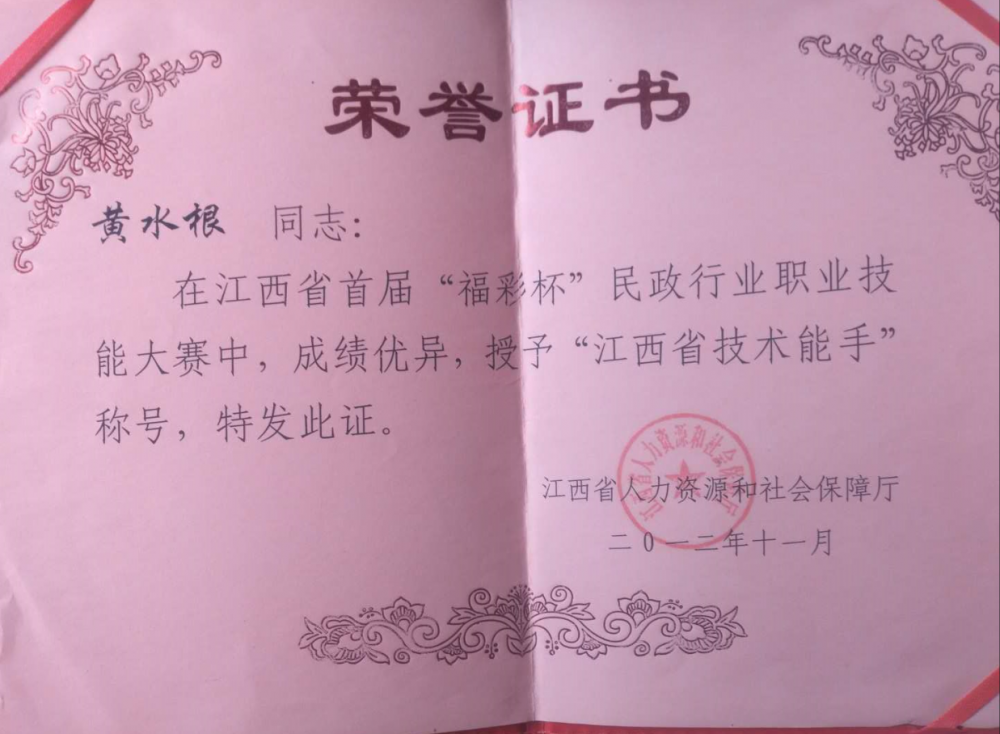 荣誉证书
黄水根 同志：
在江西省首届“福彩杯”民政行业职业技
能大赛中，成绩优异，授予“江西省技术能手”
称号，特发此证。
江西省人力资源和社会保障厅
江西省人力资源和社会保障厅
二0一二年十一月